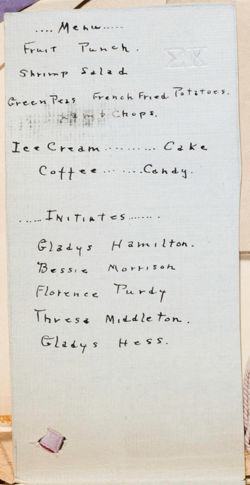 .... Menu.....
Fruit Punch.
Shrimp Salad
Green Peas French Fried Potatoes.
Chops.
Ice Cream.......... Cake
Coffee.......Candy.
..... Initiates.......
Gladys Hamilton.
Bessie Morrison
Florence Purdy
Thresa Middleton.
Gladys Hess.